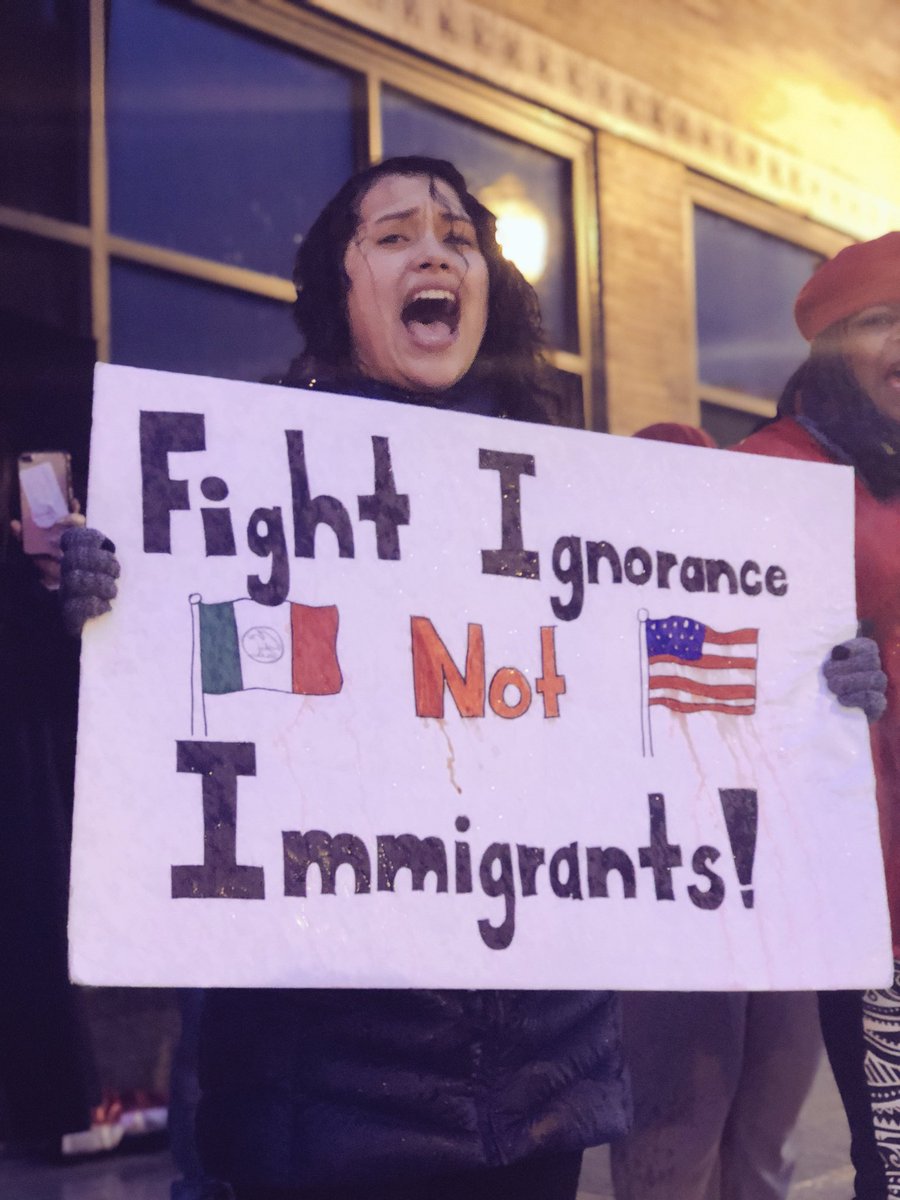 Fight Ignorance
Not
Immigrants!